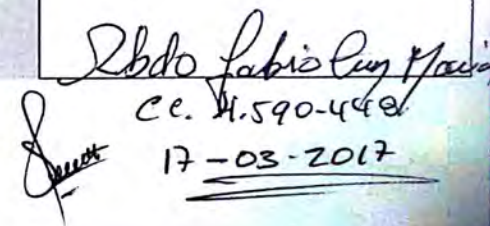 Rbdo Fabio Cruz Macia
CC. 4.590-448
17-03-2017